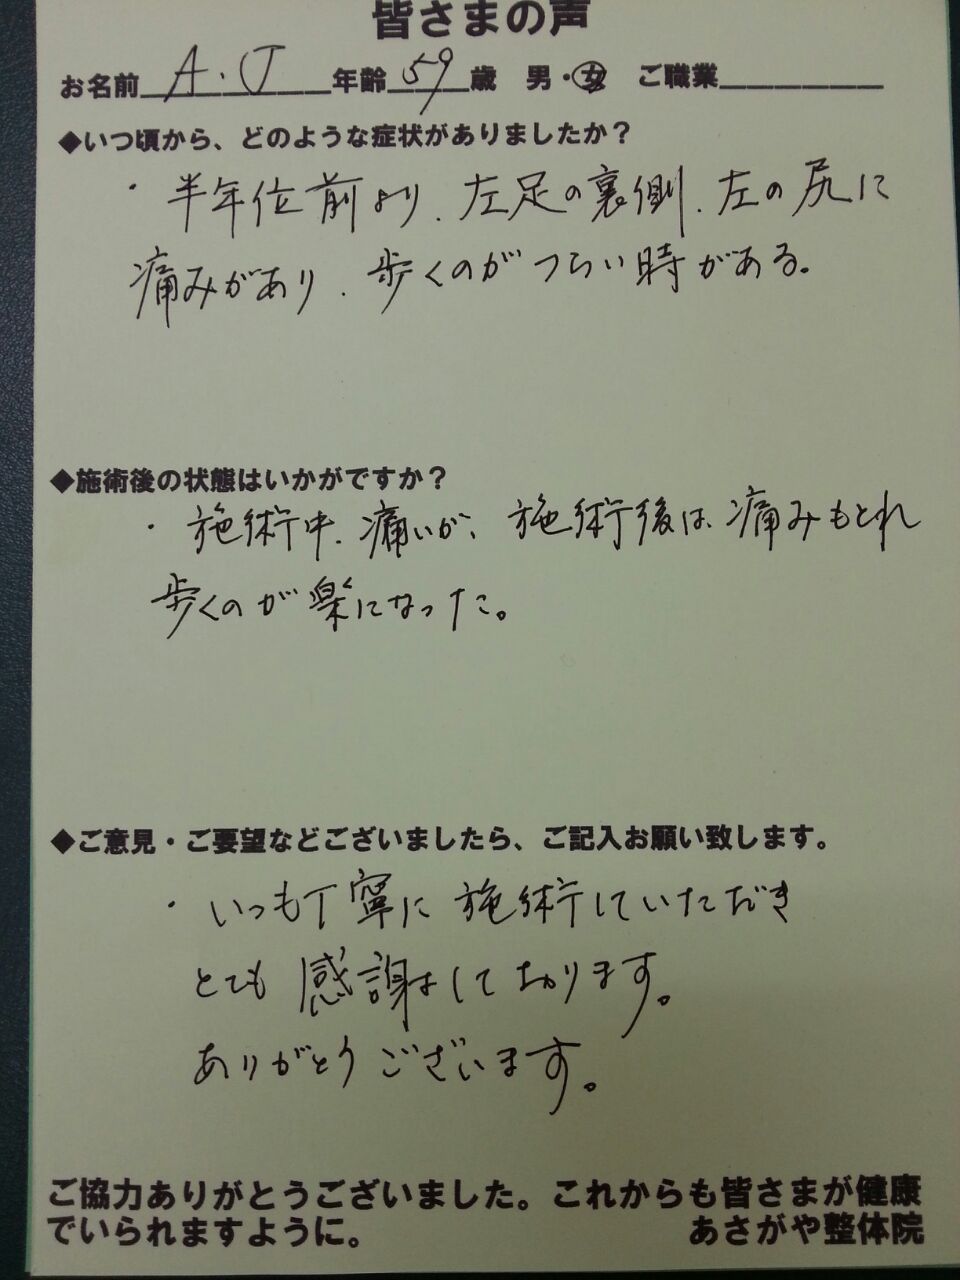 皆さまの声
お名前 A.J 年齢 59 歳 男・女 ご職業
◆いつ頃から、どのような症状がありましたか？
・半年位前より、左足の裏側、左の尻に
痛みがあり、歩くのがつらい時がある。
◆施術後の状態はいかがですか？
・施術中、痛いが、施術後は痛みもとれ
歩くのが楽になった。
◆ご意見・ご要望などございましたら、ご記入お願い致します。
・いつも丁寧に施術していただき
とても感謝しております。
ありがとうございます。
ご協力ありがとうございました。これからも皆さまが健康
でいられますように。 あさがや整体院